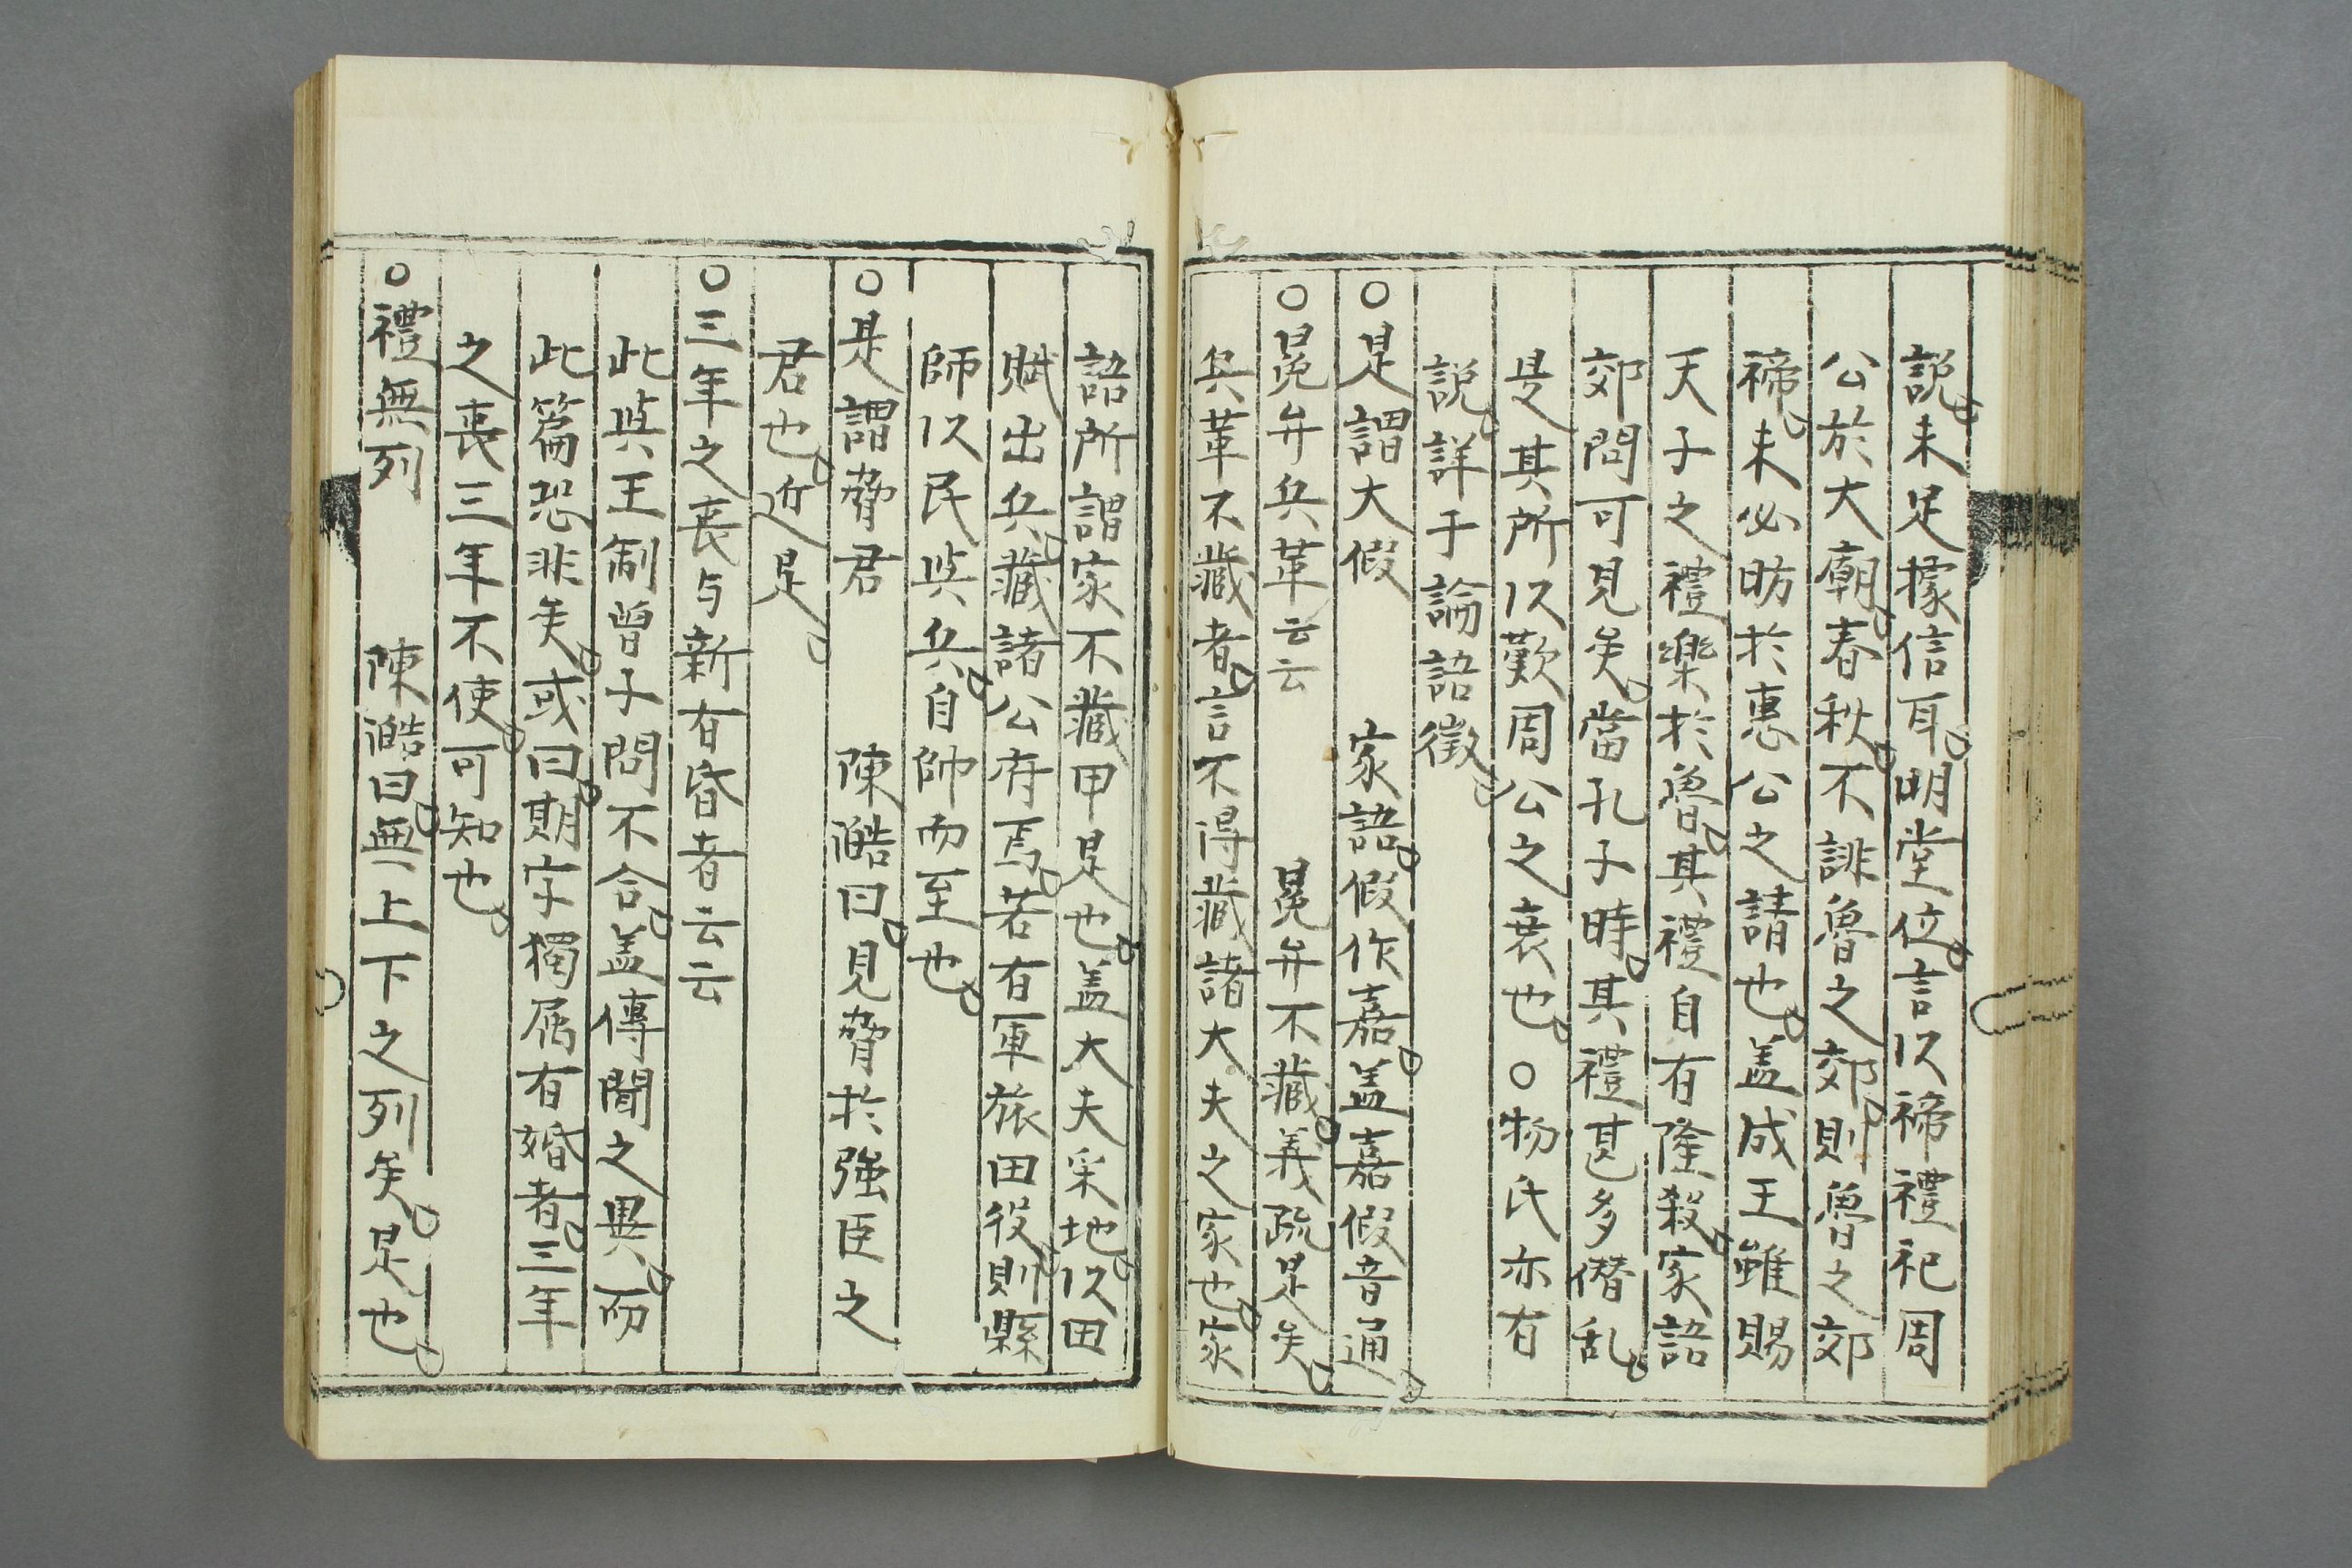 説。未足據信耳。明堂位。言以禘禮祀周
公於大廟。春秋。不誹魯之郊。則魯之郊
禘。未必昉於惠公之請也。盖成王雖賜
天子之禮樂於魯。其禮自有隆殺。家語
郊問可見矣。當孔子時。其禮甚多僭乱。
是其所以歎周公之衰也。○物氏亦有
説。詳于論語徴。
○是謂大假 家語。假作嘉。盖嘉假音通。
○冕弁兵革云云 冕弁不藏。義疏是矣。
兵革不藏者。言不得藏諸大夫之家也。家
語所謂家不藏甲是也。盖大夫采地。以田
賦出兵。藏諸公府焉。若有軍旅田役。則縣
師以民與兵。自帥而至也。
○是謂脅君 陳澔曰。見脅於強臣之
君也。近是。
○三年之喪与新有昏者云云
此與王制曽子問不合。盖傳聞之異。而
此篇恐非矣。或曰。期字獨属有婚者。三年
之喪三年不使。可知也。
○禮無列 陳澔曰。無上下之列矣。是也。